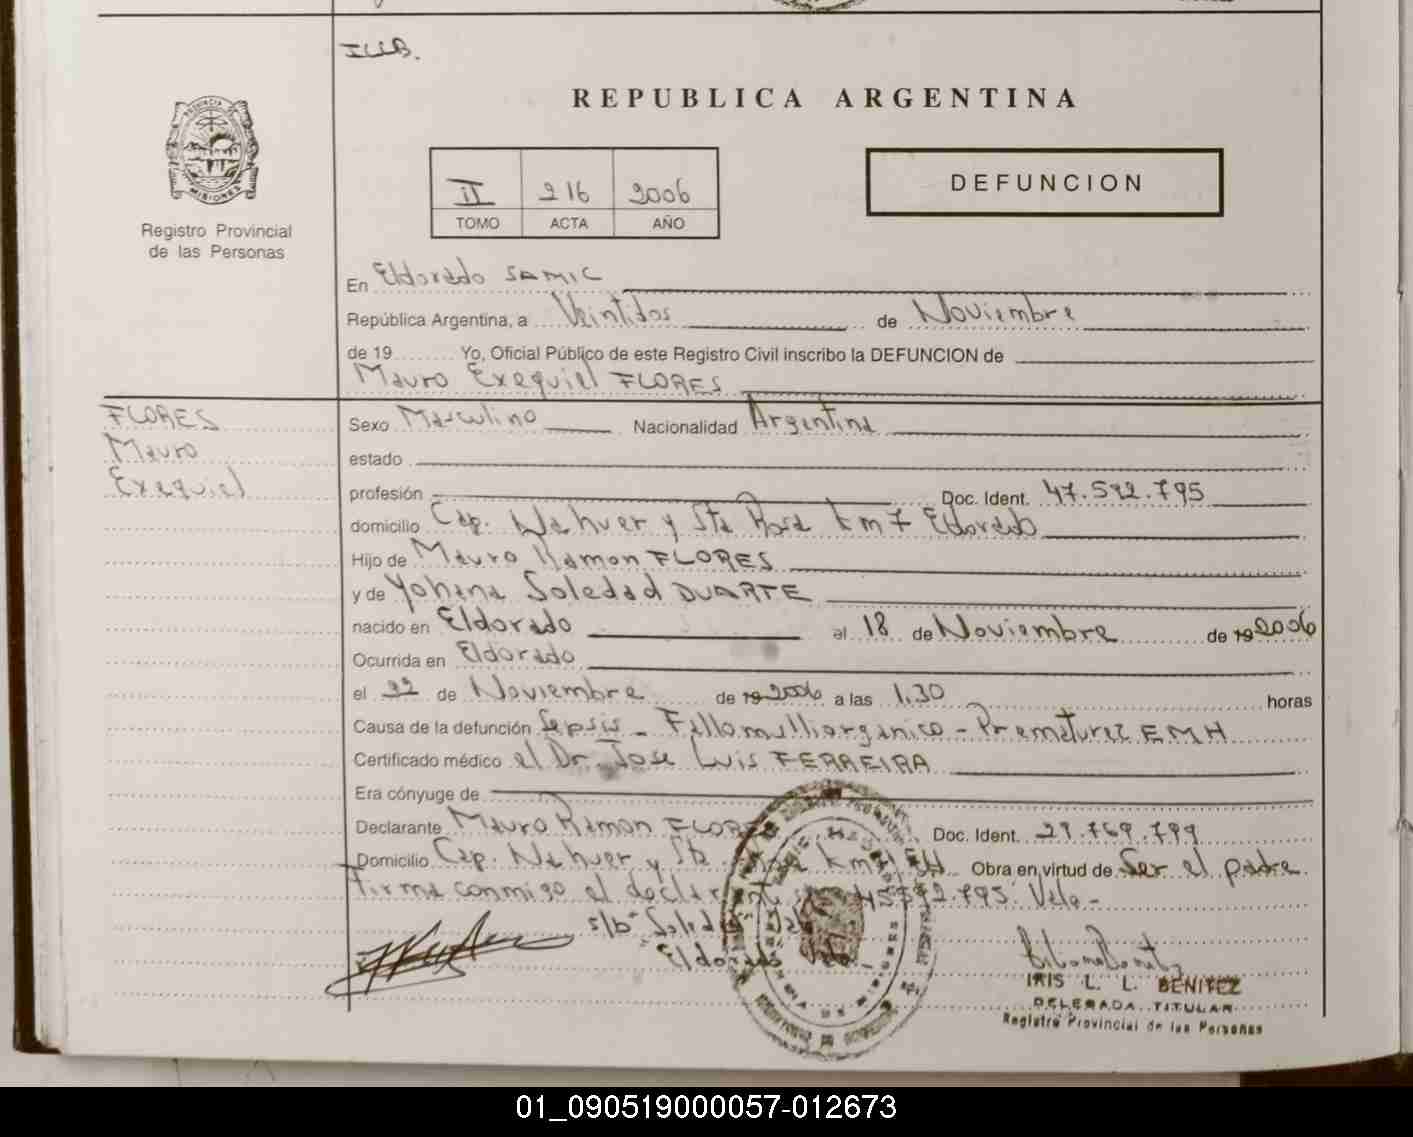 REPUBLICA ARGENTINA
PROVINCIA
MISIONES
Registro Provincial
de las Personas
II 216 2006
TOMO ACTA AÑO
DEFUNCION
En Eldorado SAMIC
República Argentina, a Veintidos de Noviembre
de 19 Yo, Oficial Público de este Registro Civil inscribo la DEFUNCION de
Mauro Exequiel FLORES
FLORES
Mauro
Exequiel
Sexo Masculino Nacionalidad Argentina
estado
profesión Doc. Ident. 47.592.795
domicilio Cap. Nahuer y Sta Rosa km 7 Eldorado
Hijo de Mauro Ramon FLORES
y de Yohana Soledad DUARTE
nacido en Eldorado el 18 de Noviembre de 19 2006
Ocurrida en Eldorado
el 22 de Noviembre de 19 2006 a las 1,30 horas
Causa de la defunción Sepsis - Fallomultiorganico - Prematurez EMH
Certificado médico el Dr. Jose Luis FERREIRA
Era cónyuge de
Declarante Mauro Ramon FLORES Doc. Ident. 29.769.799
Domicilio Cap. Nahuer y Sta km Obra en virtud de Ser el padre
Firma conmigo el declarante 592.795. Vale -
s/b Soledad
Eldorado Vale
IRIS L. L. BENITEZ
DELEGADA TITULAR
Registro Provincial de las Personas
01_090519000057-012673